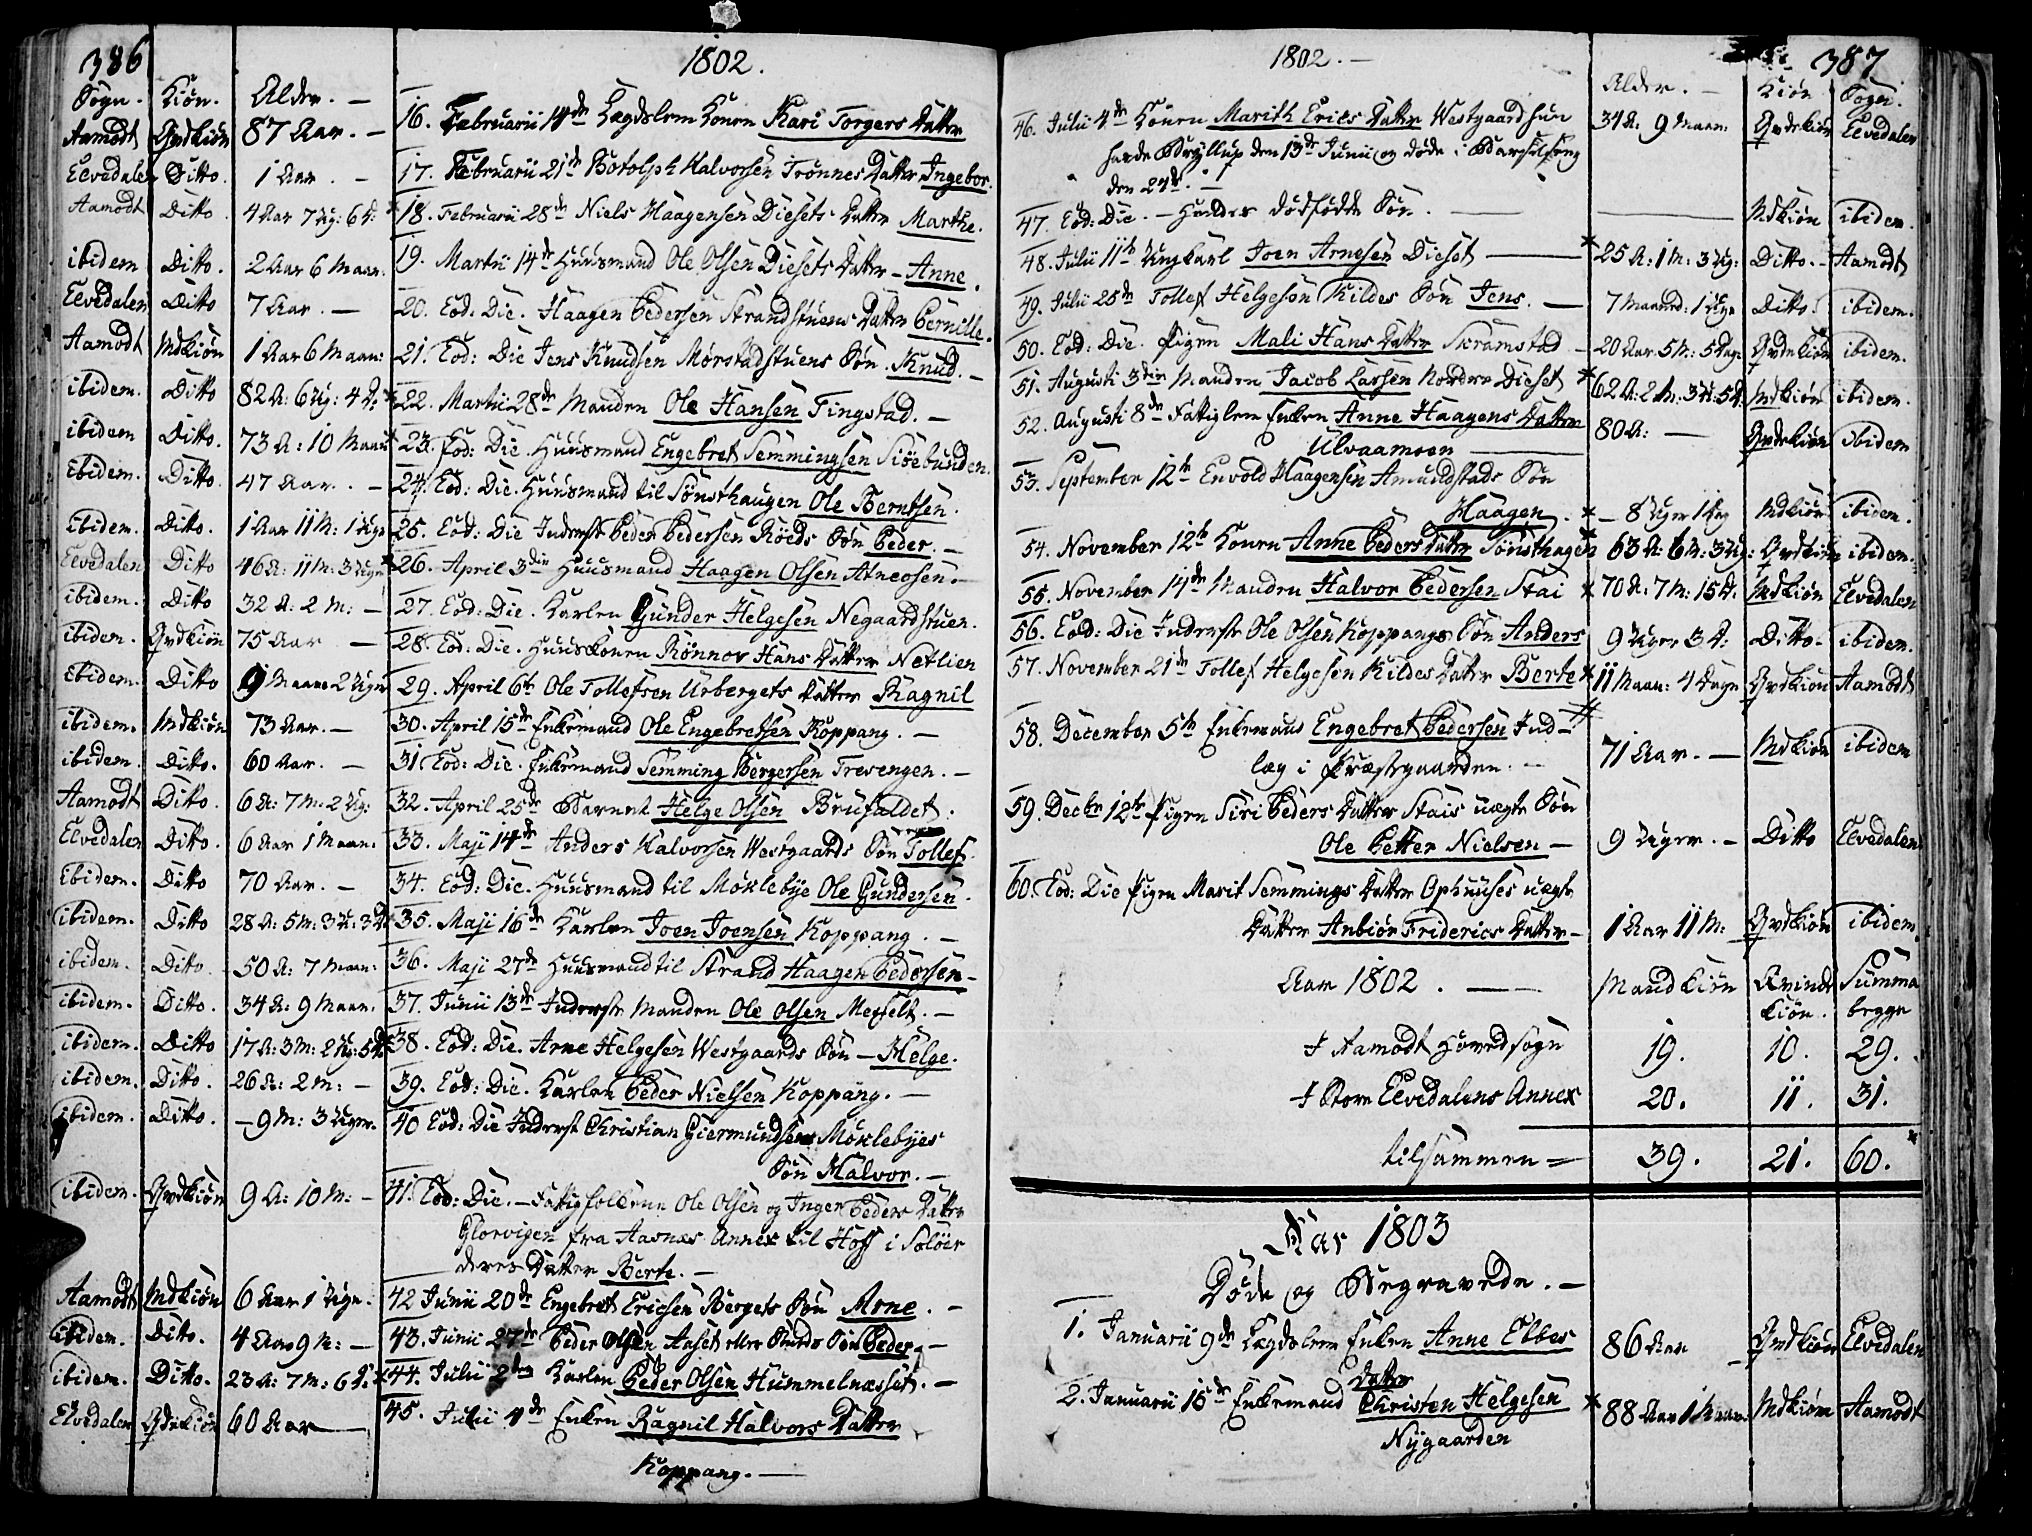 386
1802.
Sogn. Kiön. Alder. —
Aamodt Qvdkiön 87 Aar. — 16. Februarii 14de Lægdslem Konen Kari Torgers Datter
Elvedalen Ditto. 1 Aar. — 17. Februarii 21de Botolph Halvorsen Trönnes Datter Ingebor.
Aamodt Ditto. 4 Aar 7 Ug: 6 D: 18. Februarii 28de Niels Haagensen Diesets Datter Marthe.
ibidem Ditto. 2 Aar 6 Maan. 19. Martii 14de Huusmand Ole Olsen Diesets Datter — Anne.
Elvedalen Ditto 7 Aar. — 20. Eod. Die. Haagen Pedersen Strandstuens Datter Pernille.
Aamodt Mdkiön 1 Aar 6 Maan: 21. Eod: Die Jens Knudsen Mörstadstuens Sön. Knud. —
ibidem. Ditto 82 A: 6 Ug: 4 D: 22. Martii 28de Manden Ole Hansen Tingstad. —
ibidem Ditto. 73 A: 10 Maan 23. Eod: Die. Huusmand Engebret Semmingsen Siöebunden.
Ibidem. Ditto. 47 Aar. — 24. Eod: Die. Huusmand til Sönsthaugen Ole Berntsen.
ibidem. Ditto. 1 Aar 11 M: 1 Uge 25. Eod: Die Inderst Peder Pedersen Röeds Sön Peder. —
Elvedalen Ditto 46 A: 11 M: 3 Uger 26. April 3die Huusmand Haagen Olsen Atneosen.
ibidem. Ditto 32 A: 2 M: — 27. Eod: Die. Karlen Gunder Helgesen Negaardstuen.
ibidem. Qvdkiön 75 Aar — 28. Eod. Die. Huuskonen Rönnov Hans Datter Netlien
ibidem. Ditto 9 Maan 2 Uger 29. April 6te Ole Tollefsen Urbergets Datter Ragnil
ibidem. Mdkiön 73 Aar. — 30. April 15de Enkemand Ole Engebretsen Koppang. —
ibidem. Ditto. 60 Aar. — 31. Eod: Die. Enkemand Semming Bergersen Trevengen. —
Aamodt Ditto. 6 A: 7 M: 2 Ug: 32. April 25de Barnet Helge Olsen Brufaldet.
Elvedalen Ditto. 6 Aar 1 Maan. 33. Maji 14de Anders Halvorsen Westgaards Sön Tollef.
Ibidem. Ditto 70 Aar. — 34. Eod: Die. Huusmand til Möklebye Ole Gundersen.
ibidem. Ditto 28 A: 5 M: 3 U: 3 D: 35. Maji 16de Karlen Joen Joensen Koppang. —
ibidem. Ditto. 50 A: 7 Maan: 36. Maji 27de Huusmand til Strand Haagen Pedersen —
ibidem. Ditto. 34 A: 9 Maan. 37. Junii 13de Inderste Manden Ole Olsen Messelt. —
ibidem. Ditto 17 A: 3 M: 2 Ug: 5 D: 38. Eod: Die. Arne Helgesen Westgaards Sön — Helge.
ibidem. Ditto. 26 A: 2 M: — 39. Eod: Die. Karlen Peder Nielsen Koppang. —
ibidem. Ditto. — 9 M: 3 Uger. 40 Eod: Die Inderst Christian Giermundsens Möklebyes
Sön Halvor. —
ibidem. Qvdkiön 9 A: 10 M: — 41. Eod: Die. — Fattigfolkene Ole Olsen og Inger Peders Datter
Glorvigen fra Aasnæs Annex til Hoff i Soløer
deres Datter Berte. —
Aamodt Mdkiön 6 Aar 1 Uge. 42 Junii 20de Engebret Ericsen Bergets Sön Arne. —
ibidem. Ditto. 4 Aar 9 M: — 43. Junii 27de Peder Olsen Anset eller Sunds Sön Peder. —
ibidem. Ditto. 23 A: 7 M: 6 D: 44. Julii 2den Karlen Peder Olsen Hummelnæsset. —
Elvedalen Qvdekiön 60 Aar — 45. Julii 4de Enken Ragnil Halvors Datter
Koppang. —
1802. — 387
Alder. — Kiön Sogn.
46. Julii 4de Konen Marith Erics Datter Westgaard hun 34 A: 9 Maan: Qvdekiön Elvedalen
havde Bryllup den 13de Junii og döde i Barselseng
den 27de. —
47. Eod: Die. — Hendes dödfödde Sön. — Mdkiön ibidem.
48. Julii 11te Ungkarl Joen Arnesen Dieset — 25 A: 1 M: 3 Ug: Ditto. Aamodt
49. Julii 25de Tollef Helgesön Kildes Sön Jens. — 7 Maaned. 1 Uge Ditto. ibidem.
50. Eod: Die. Pigen Mali Hans Datter Skramstad — 20 Aar 5 M: 5 Dage Qvdekiön ibidem.
51. Augusti 3die Manden Jacob Larsen Nordre Dieset 62 A: 2 M: 3 U: 5 D: Mdkiön ibidem.
52. Augusti 8de Fattiglem Enken Anne Haagens Datter 80 A: — Qvdekiön ibidem
Ulvaamoen —
53. September 12te Envold Haagensen Amundstads Sön
Haagen. — 8 Uger 1 Dag Mdkiön ibidem.
54. November 12te Konen Anne Peders Datter Sönsthagen 63 A: 6 M: 3 Ug: Qvdkiön ibidem.
55. November 14de Manden Halvor Pedersen Stai 70 A: 7 M: 15 D: Mdkiön Elvedalen
56. Eod: Die Inderste Ole Olsen Koppangs Sön Anders 9 Uger 3 D: Ditto. ibidem.
57. November 21de Tollef Helgesen Kildes Datter Berte 11 Maan: 4 Dage Qvdkiön Aamodt
58. December 5te Enkemand Engebret Pedersen Ind- 71 Aar. — Mdkiön ibidem
læg i Præstegaarden. —
59. Decbr 12te Pigen Siri Peders Datter Stais uægte Sön
Ole Petter Nielsen — 9 Uger. — Ditto Elvedalen
60. Eod: Die Pigen Marit Semmings Datter Ophuuses uægte
Datter Anbiör Friderics Datter — 1 Aar 11 M: Qvdkiön ibidem.
Aar 1802. — Mandkiön Qvindekiön. Summa begge
I Aamodt Hovedsogn 19. 10. 29.
I Store Elvedalens Annex 20. 11. 31.
tilsammen = 39. 21. 60.
Aar 1803
Döde og Begravede. —
1. Januarii 9de Lægdslem Enken Anne Ebbes 86 Aar — Qvdkiön Elvedalen
Datter
2. Januarii 16de Enkemand Christen Helgesen 88 Aar 1 Maan. Mdkiön Aamodt
Nygaarden